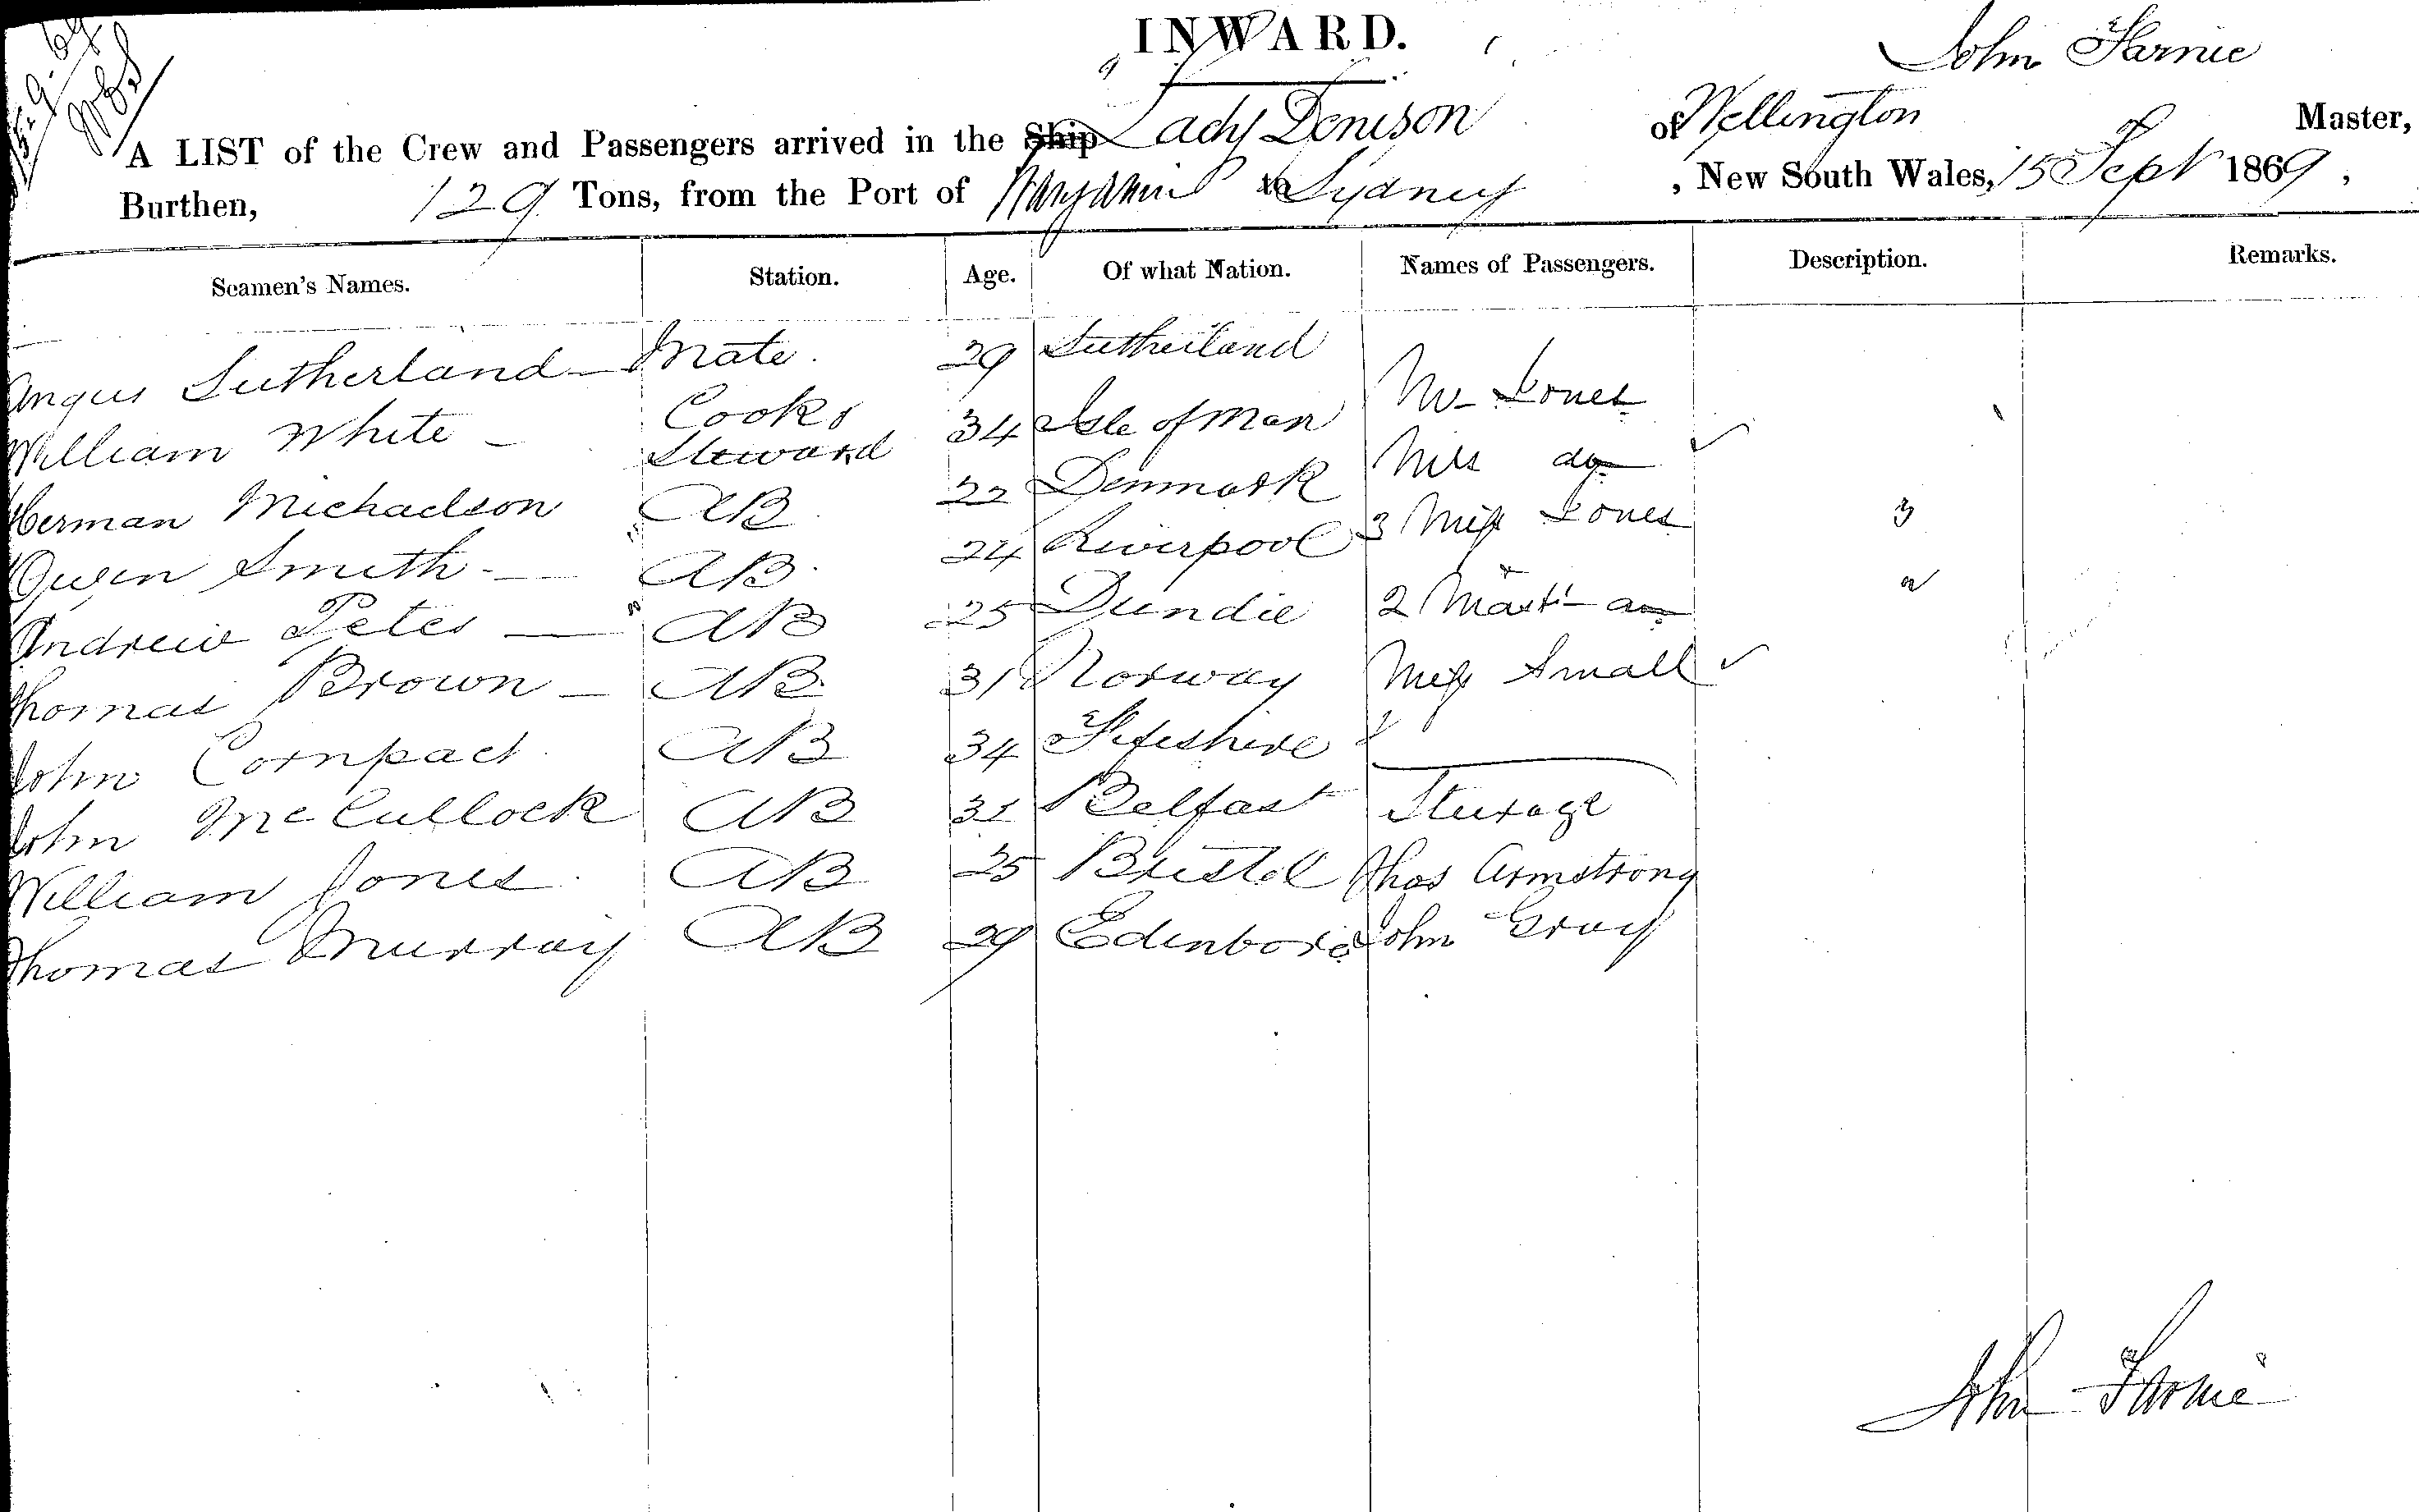 15-9-69
INWARD.
John Farnie
A LIST of the Crew and Passengers arrived in the Ship Lady Denison of Wellington Master,
Burthen, 129 Tons, from the Port of to Sydney , New South Wales, 15 Sept 1869 ,
Seamen's Names. Station. Age. Of what Nation. Names of Passengers. Description. Remarks.
Angus Sutherland Mate. 29 Sutherland Mr Jones
William White Cook & Steward 34 Isle of Man Mrs do
Herman Michaelson AB 22 Denmark 3 Miss Jones 3
Owen Smith AB 24 Liverpool 2 Mast do 2
Andrew Peter AB 25 Dundie Miss Small
Thomas Brown AB 31 Norway
John Compact AB 34 Fifeshire
John McCullock AB 31 Belfast Sturage
William Jones AB 25 Bristol Thos Armstrong
Thomas Murray AB 29 Edinboro John Gray
John Farnie